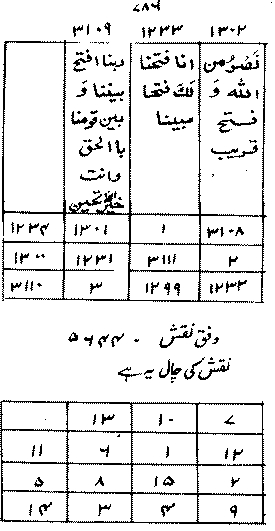 ۷۸۶
۱۳۰۲ ۱۲۳۳ ۳۱۰۹
نَصرُ مِن
الله وَ
فتح
قریب
انا فتحنا
لک فتحا
مبینا
ربنا افتح
بیننا وَ
بین قومنا
باالحق
وانت
خیر الفاتحین
۳۱۰۸ ۱ ۱۳۰۱ ۱۲۳۴
۲ ۳۱۱۱ ۱۲۳۱ ۱۳۰۰
۱۲۳۲ ۱۲۹۹ ۳ ۳۱۱۰
وفق نقش ۔ ۵۶۴۴
نقش کی چال یہ ہے
۷ ۱۰ ۱۳
۱۲ ۱ ۶ ۱۱
۲ ۱۵ ۸ ۵
۹ ۴ ۳ ۱۴